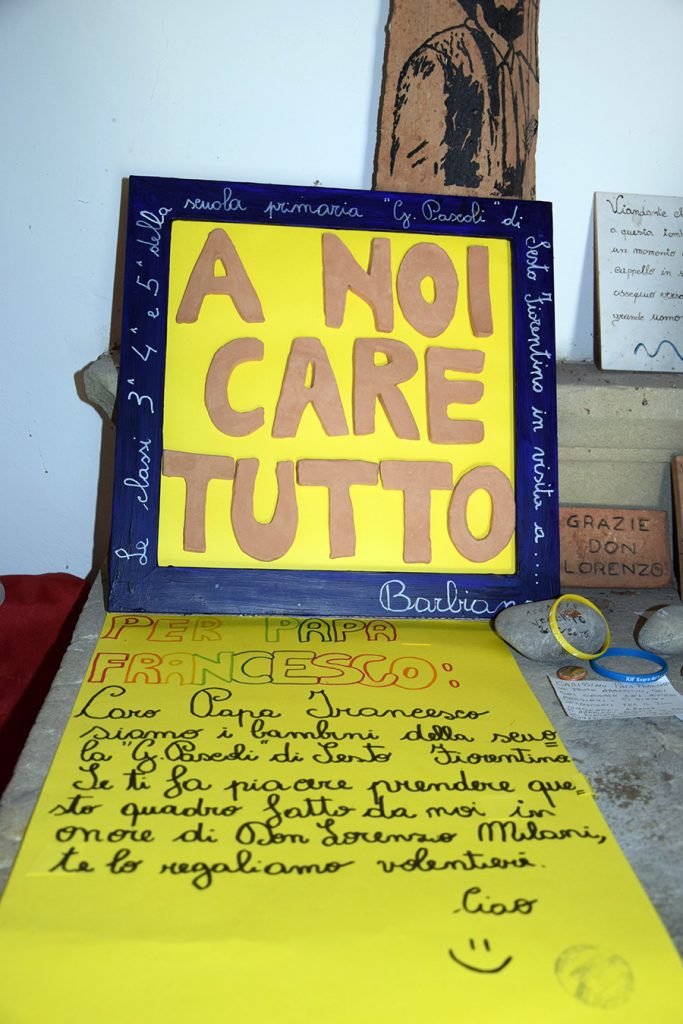 Le classi 3^ 4^ e 5^ della
scuola primaria "G. Pascoli" di
Sesto Fiorentino in visita a.....
Barbiana
A NOI
CARE
TUTTO
Viandante
a questa
un momento
cappello in
ossequio verso
grande uomo
GRAZIE
DON
LORENZO
PER PAPA
FRANCESCO:
Caro Papa Francesco
siamo i bambini della scuo
la "G. Pascoli" di Sesto Fiorentino.
Se ti fa piacere prendere que=
sto quadro fatto da noi in
onore di Don Lorenzo Milani,
te lo regaliamo volentieri.
Ciao